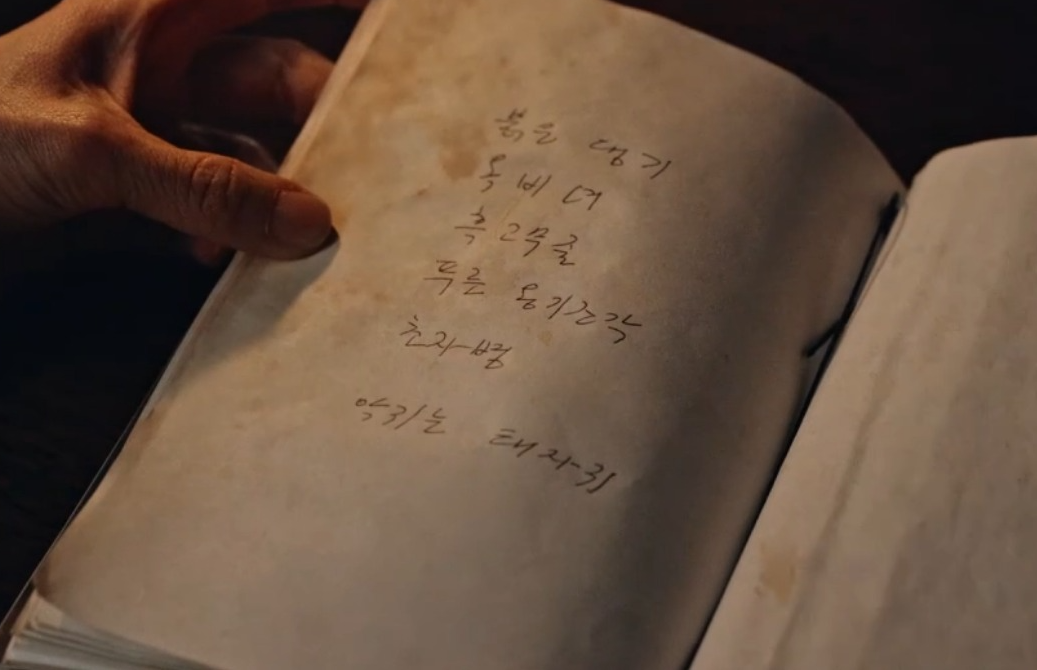 붉은 댕기
옥비녀
흑고무줄
푸른 옹기조각
초자병
악귀는 태자귀